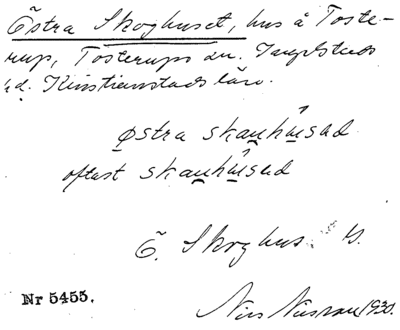 Östra Skoghuset, hus å Toste-
rup, Tosterups sn. Ingelstads
hd. Kristianstads län.
østra skau̯hʉ́sad
oftast skau̯hʉ́sad
Ö. Skoghus
Nr 5455.
Nils 1930.